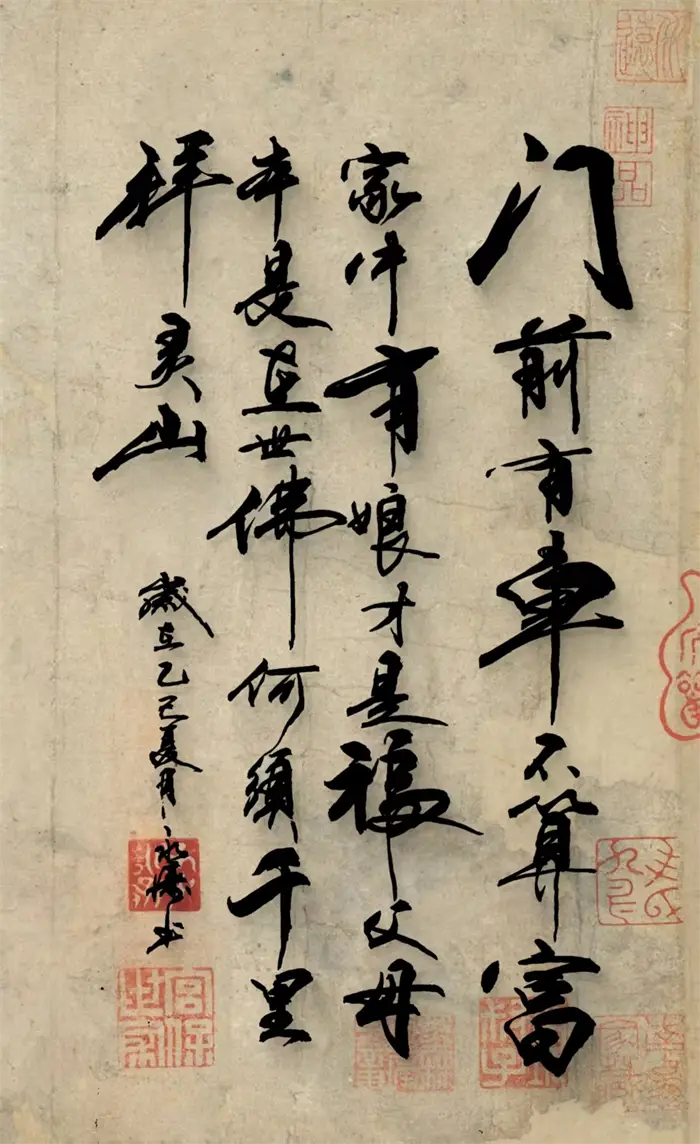 门前有車不算富
家中有娘才是福父母
本是在世佛何須千里
拜灵山
歲在乙巳夏月永
神品
宮保